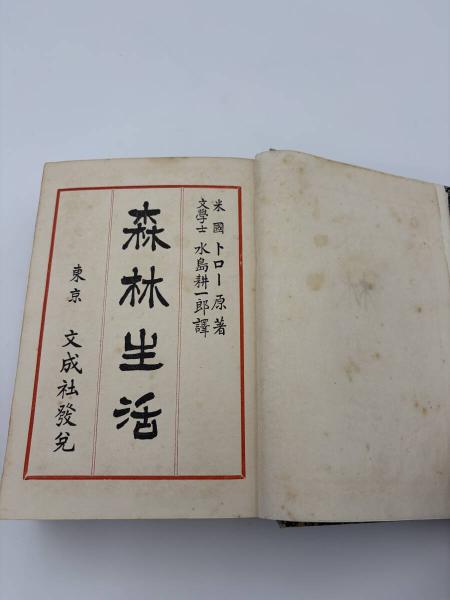 米國トロー原著
文學士 水島耕一郎譯
森林生活
東京 文成社發兌